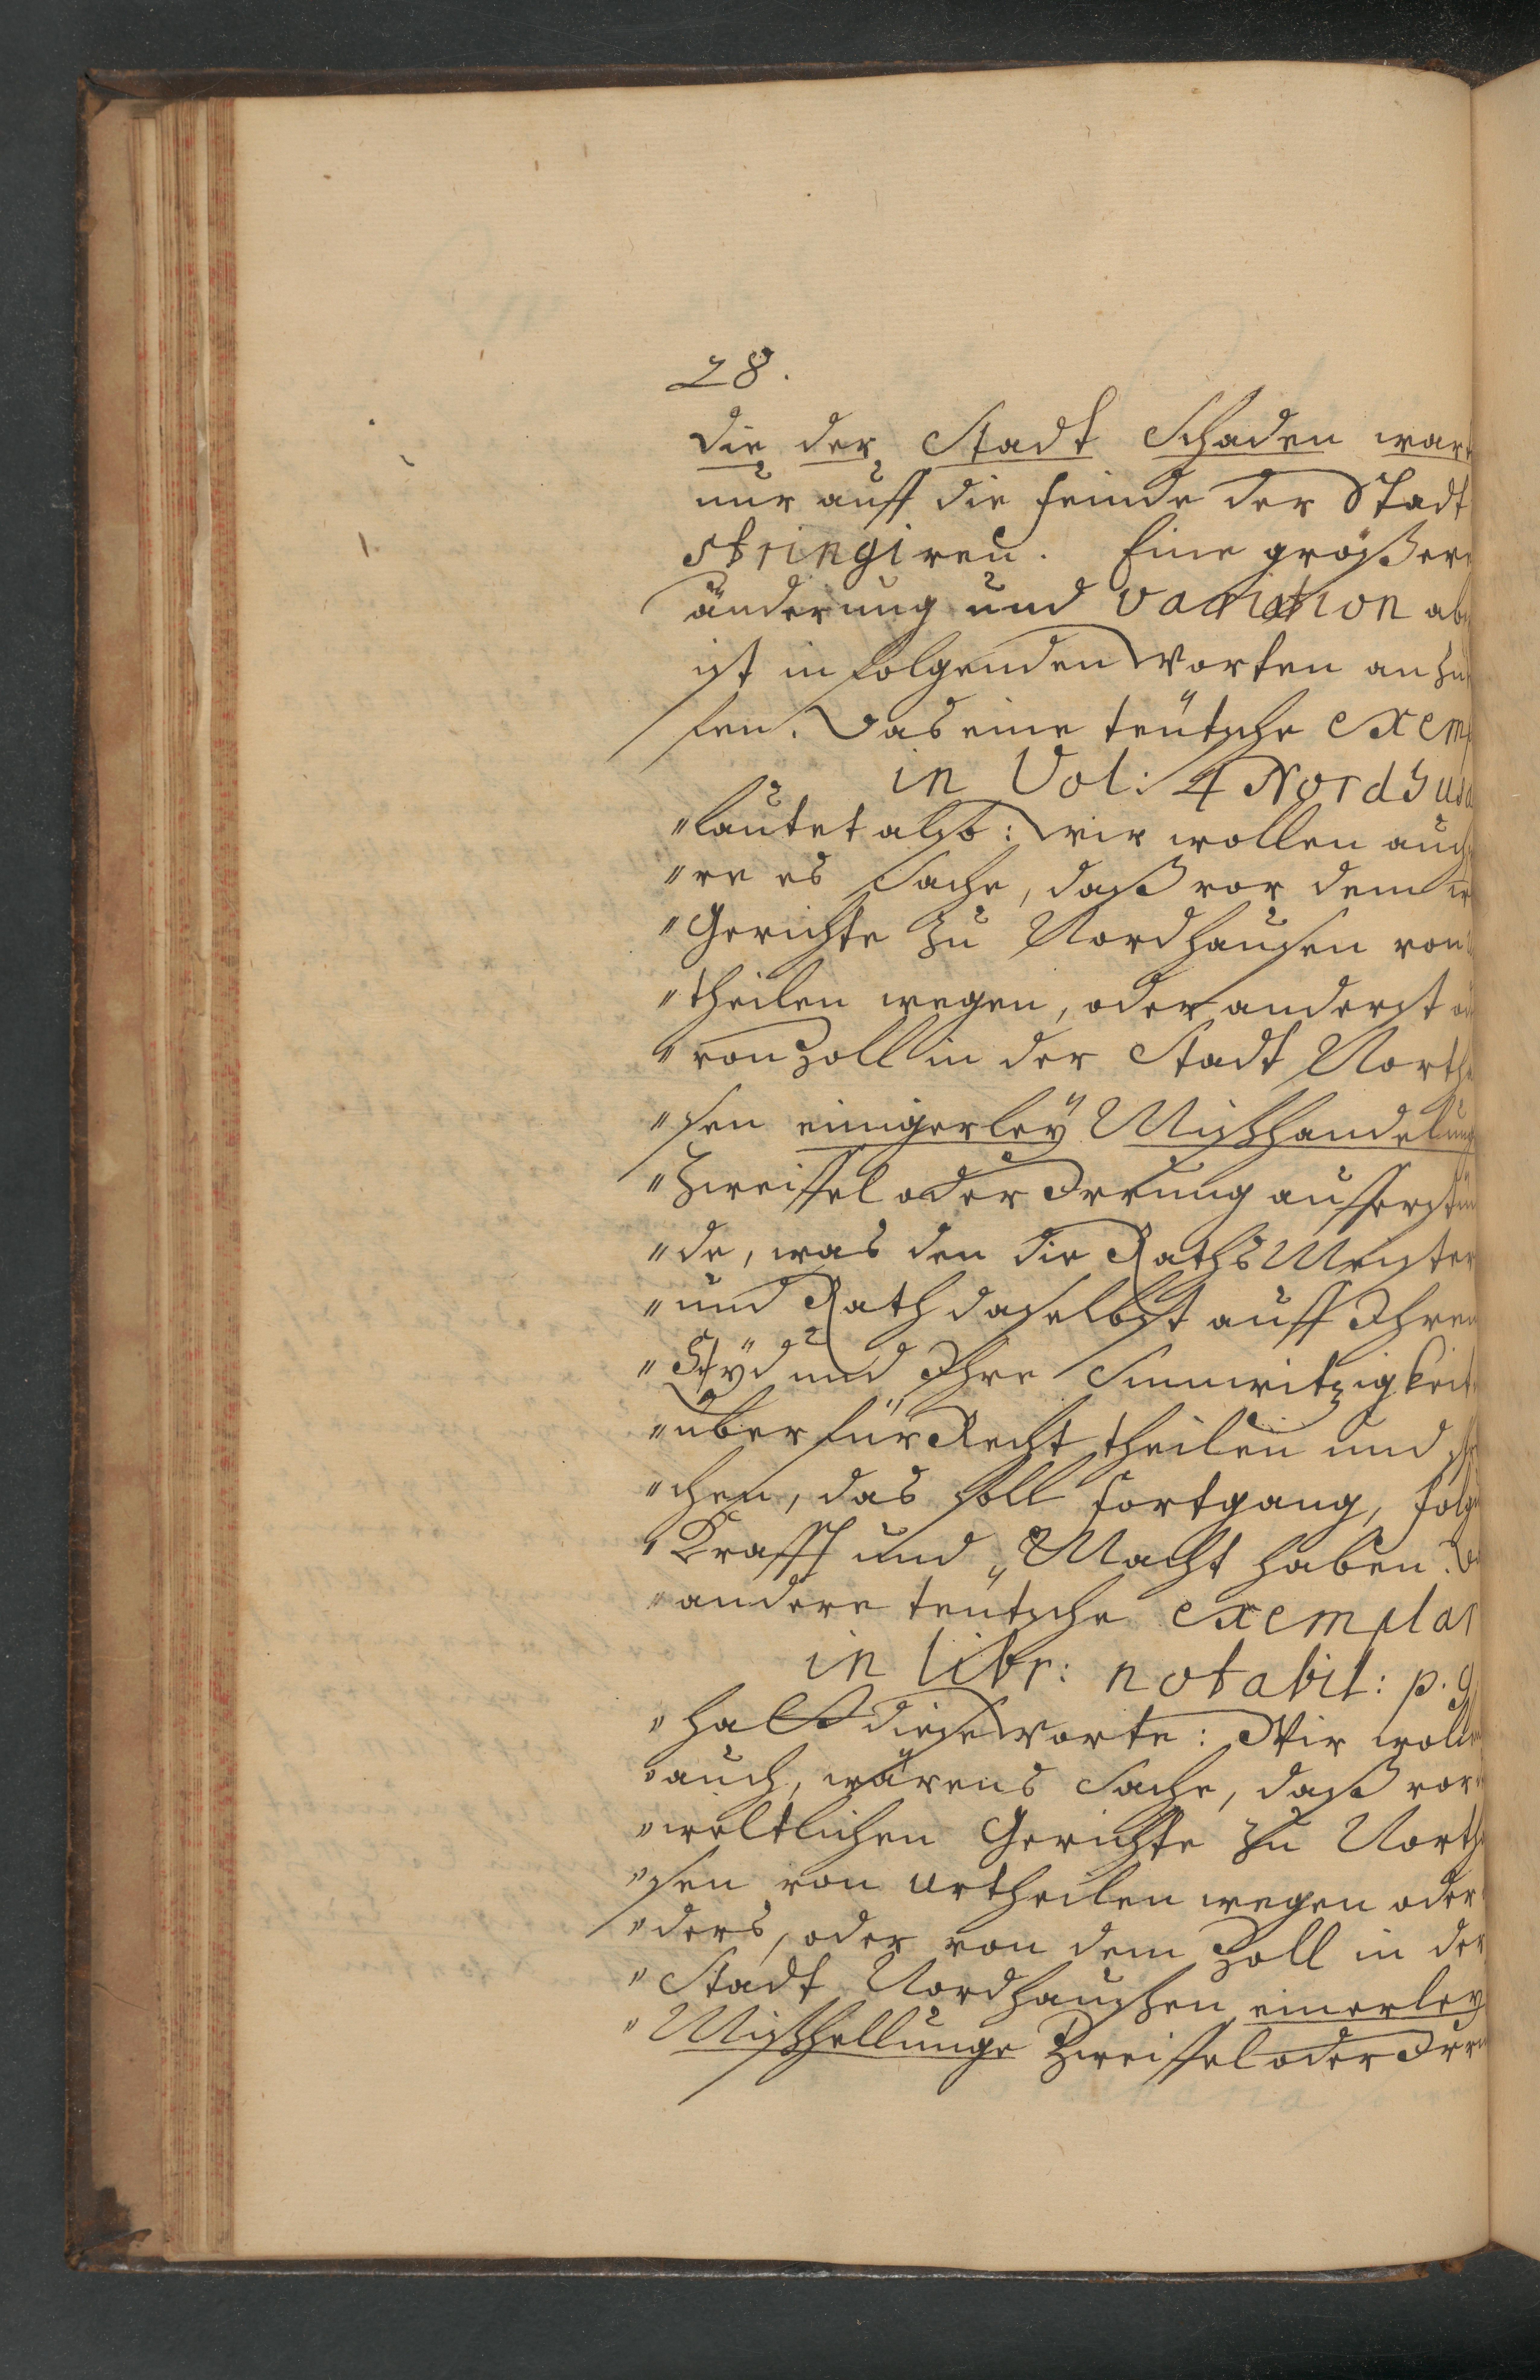 28.
die der Stadt Schaden war
nur auff die feinde der Stadt
stringiren. Eine größer
änderung und variation ab
ist in folgenden Worten anzu
sen. Das eine teütsche exemp
in Vol: 4 Nordhus
"lautet also: wir wollen auch
"re es Sache, daß vor dem
"Gerichte zu Nordhausen von
"theilen wegen, oder anderst
"von Zoll in der Stadt North
"sen einigerley Mißhandelung
"Zweiffel oder Irrung aufferstün
"de, was den die Raths Meister
"und Rath daselbst auff Ihren
" und Ihre Sinnwitzigkeit
"über für Recht theilen und
"chen, das soll fortgang, folg
"Krafft und Macht haben.
"andere teütsche exemplar
in libr: notabil: p. 9
"hat diese Worte: Wir woll
"auch, wärens Sache, daß vor
"weltlichen Gerichte zu North
"sen von urtheilen wegen oder
"ders, oder von dem Zoll in der
"Stadt Nordhaußen einerley
"Mißhellunge Zweiffel oder Irr